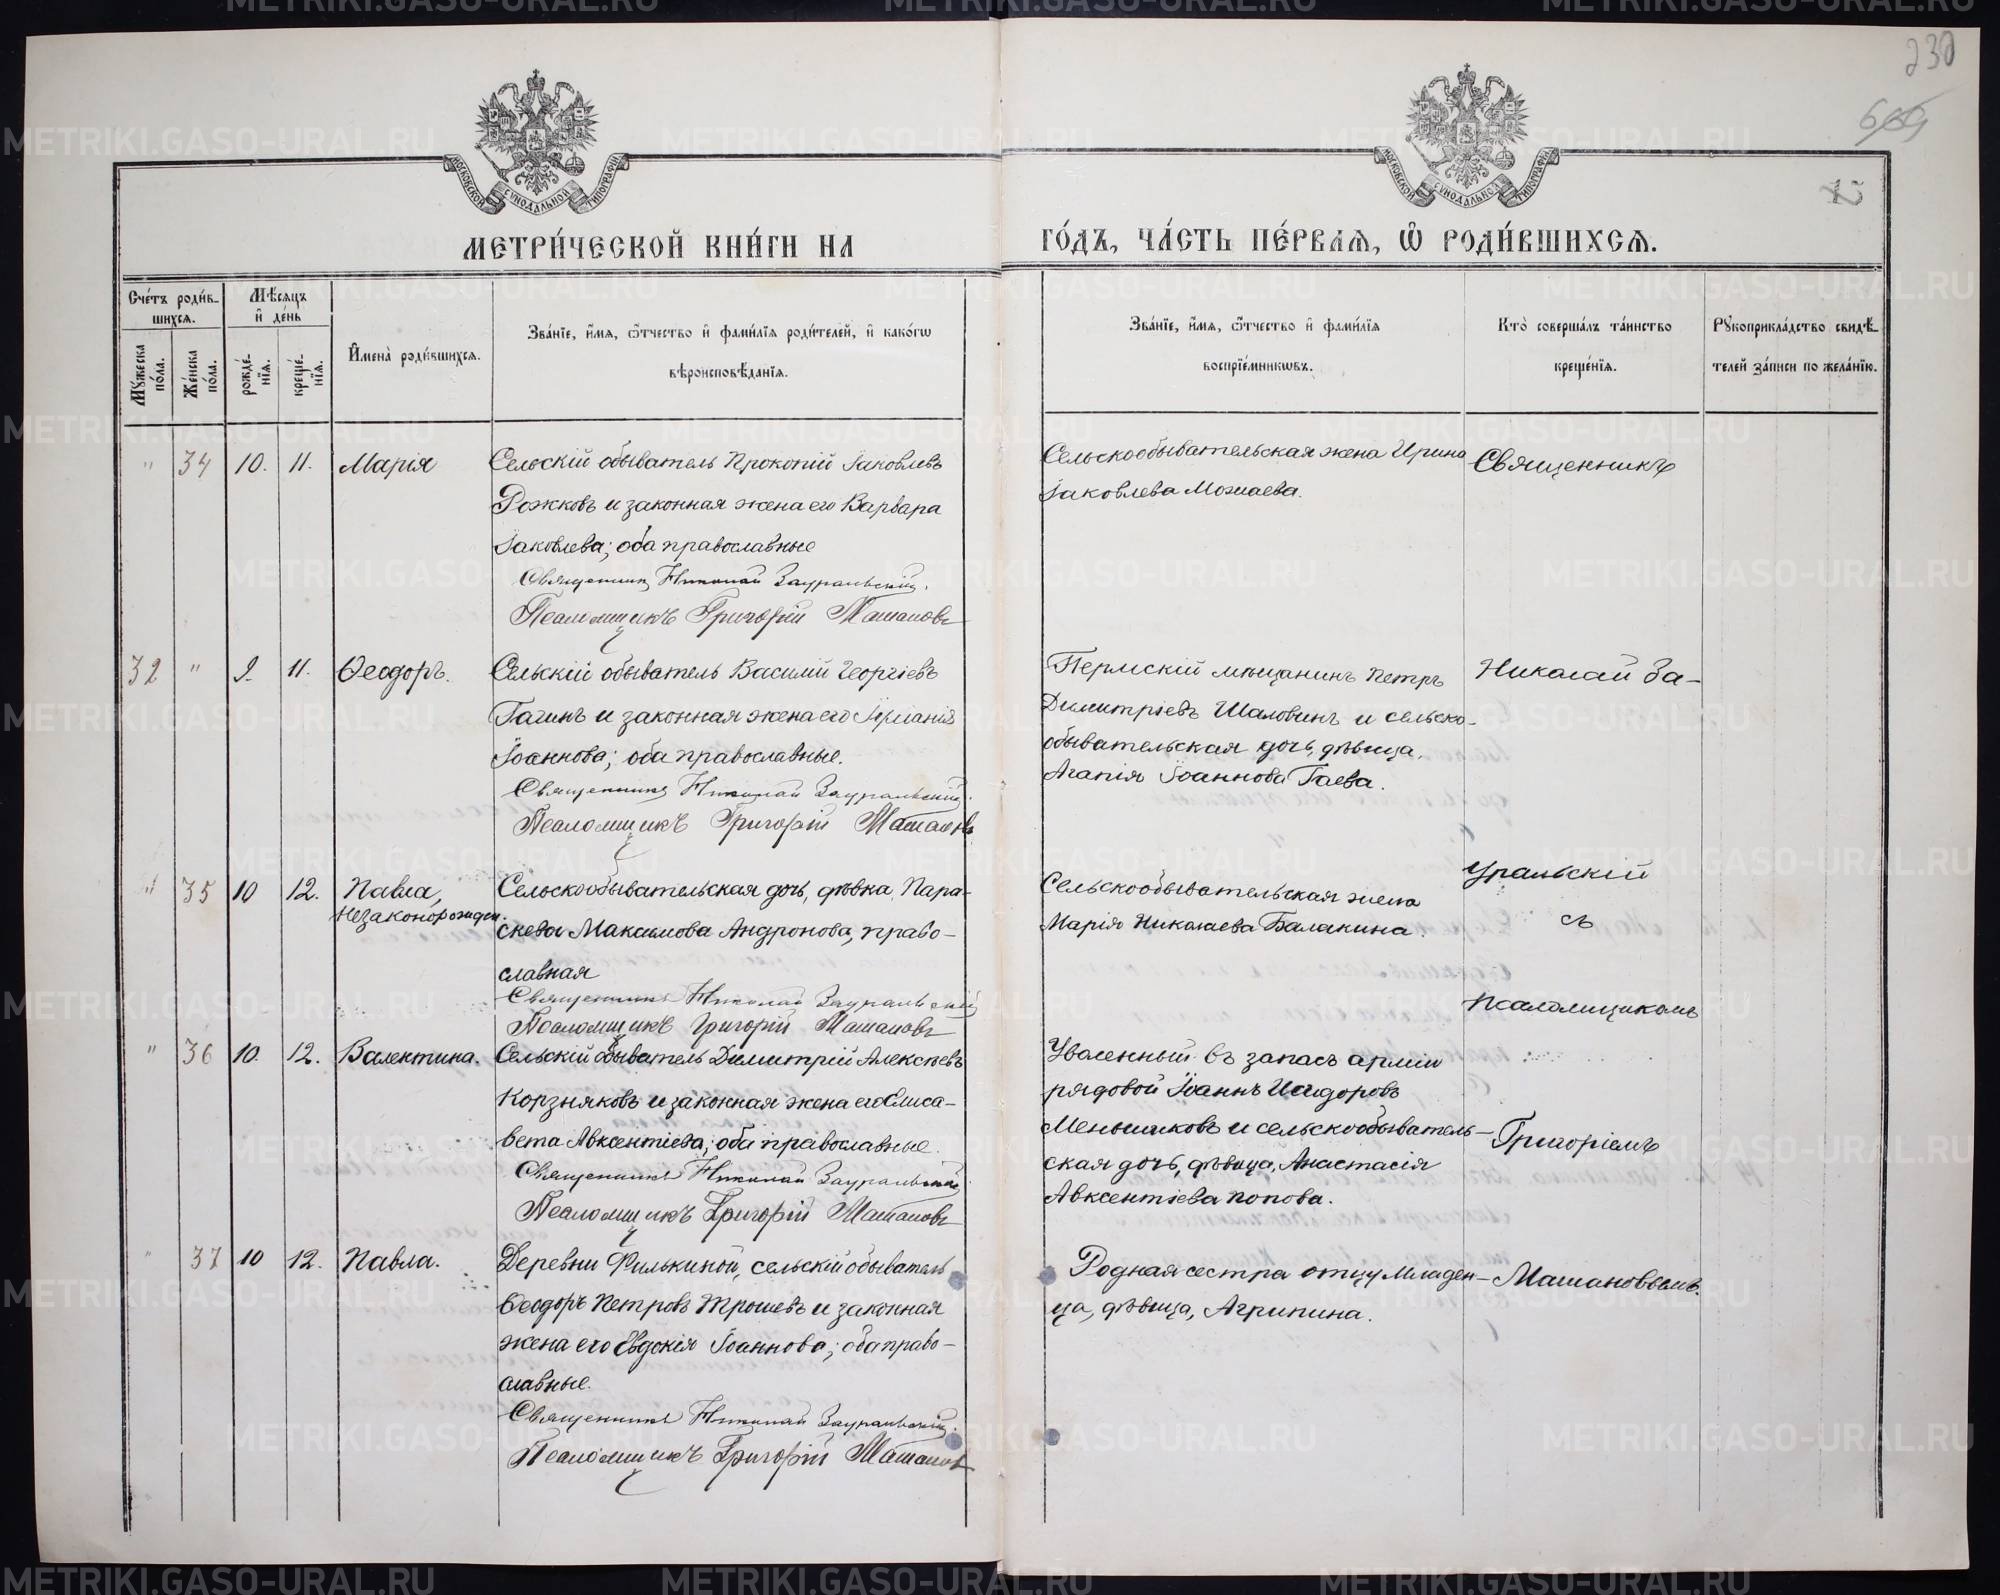 230
669
15
МОСКОВСКОЙ СѴНОДАЛЬНОЙ ТИПОГРАФІИ
МОСКОВСКОЙ СѴНОДАЛЬНОЙ ТИПОГРАФІИ
МЕТРИ́ЧЕСКОЙ КНИ́ГИ НА
ГО́ДЪ, ЧА́СТЬ ПЕ́РВАѦ, Ѽ РОДИ́ВШИХСѦ.
Сче́тъ роди́в-
шихсѧ.
Мꙋ́жеска по́ла.
Же́нска по́ла.
Мѣ́сѧцъ
и҆ де́нь
рожде́-
нїѧ.
креще́-
нїѧ.
И҆мена̀ роди́вшихсѧ.
Зва́нїе, и҆́мѧ, ѻ҆́тчество и҆ фами́лїѧ роди́телей, и҆ како́гѡ
вѣроисповѣ́данїѧ.
Зва́нїе, и҆́мѧ, ѻ҆́тчество и҆ фами́лїѧ
воспрїе́мникѡвъ.
Кто̀ соверша́лъ та́инство
креще́нїѧ.
Рꙋкоприкла́дство свидѣ́-
телей за́писи по жела́нїю.
" 34 10. 11. Марія
Сельскій обыватель Прокопій Іаковлевъ
Рожковъ и законная жена его Варвара
Іаковлева; оба православные
Священникъ Николай Зауральскій.
Псаломщикъ Григорій Машановъ
Сельскообывательская жена Ирина
ІаковлеваМожаева.
Священникъ
32 " 9. 11. Ѳеодоръ.
Сельскій обыватель Василій Георгіевъ
Гагинъ и законная жена его
Іоаннова; оба православные.
Священникъ Николай Зауральскій.
Псаломщикъ Григорій Машановъ
Пермскій мѣщанинъ Петръ
Димитріевъ Шаловинъ и сельско-
обывательская дочь, дѣвица,
Агапія Іоаннова Гаева.
Николай За-
" 35 10 12. Павла,
незаконорожден.
Сельскообывательская дочь, дѣвка, Пара-
скева Максимова Андронова, право-
славная
Священникъ Николай Зауральскій
Псаломщикъ Григорій Машановъ
Сельскообывательская жена
Марія Николаева Балакина.
уральскій
съ
псаломщикомъ
" 36 10. 12. Валентина.
Сельскій обыватель Димитрій Алексѣевъ
Корзняковъ и законная жена его Елиса-
вета Авксентіева; оба православные.
Священникъ Николай Зауральскій
Псаломщикъ Григорій Машановъ
Уволенный въ запасъ арміи
рядовой Іоаннъ Исидоровъ
Меньшиковъ и сельскообыватель-
ская дочь, дѣвица, Анастасія
Авксентіева Попова.
Григоріемъ
" 37 10 12. Павла.
Деревни Филькиной, сельскій обыватель
Ѳеодоръ Петровъ Трошевъ и законная
жена его Евдокія Іоаннова; оба право-
славные.
Священникъ Николай Зауральскій.
Псаломщикъ Григорій Машановъ
Родная сестра отцу младен-
ца, дѣвица, Агрипина.
Машановымъ.
METRIKI.GASO-URAL.RU